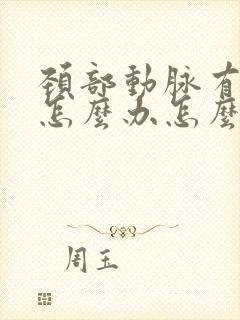 頚部動脉有
怎麼办怎麼
周玉